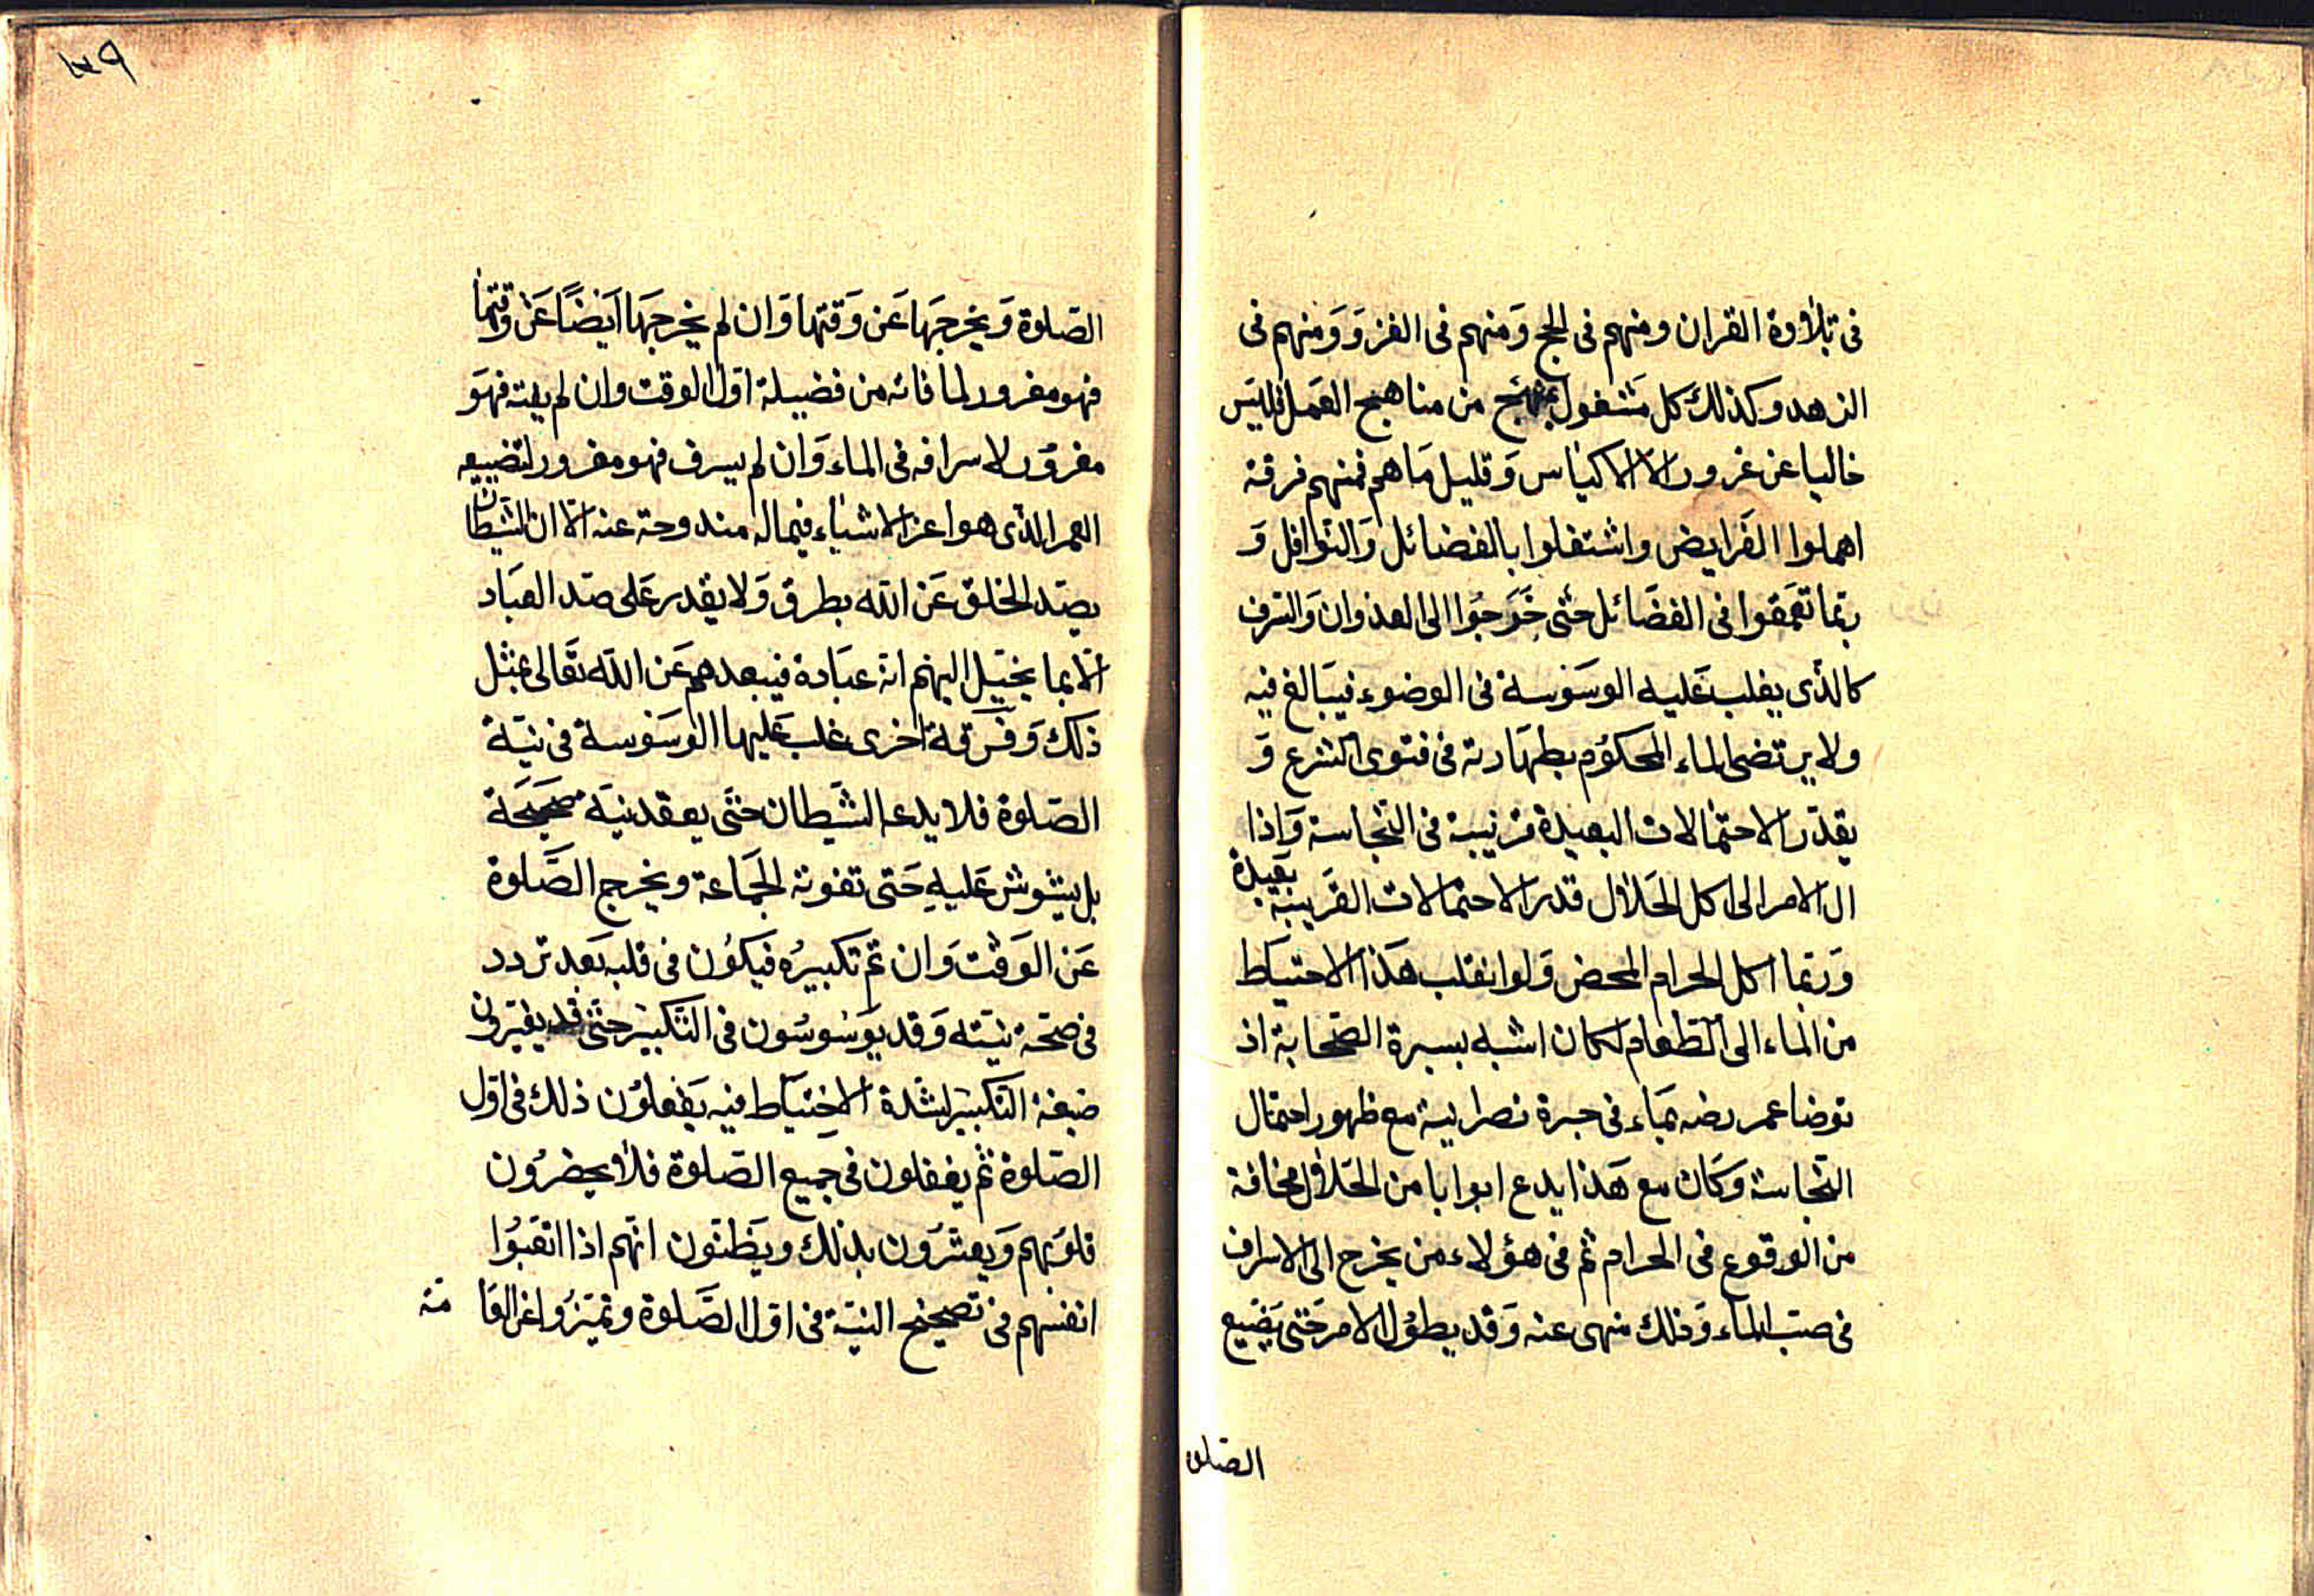 فى تلاوة القران ومنهم فى الحج وَمنهم فى الغزو وَمنهم فى
الزهد وكذلك كل مَشغول بمنهج من مناهج العَمل فليسَ
خاليا عن غرور الا الاكياس وَقليل مَا هم فمنهم فرقة
اهملوا الفَرايض واشتغلوا بالفضائل وَالنوافل وَ
ربّما تعمّقوا فى الفضَائل حتى خَرَجوُا الى العدوان وَالسرف
كالذّى يغلب عَليه الوسَوسة فى الوضوء فيبَالغ فيه
ولا يرتضى الماء المحكوُم بطهَارته فى فتوى الشرع وَ
يقدّر الاحتمالات البعيدة قريبة فى النّجاسة وَاذا
ال الامر الى اكل الحَلال قدر الاحتمالات القَريبَة بعَيدة
وَربّما اكل الحرام المحض وَلو انقلب هَذا الاحتيَاط
من الماء الى الطعام لكان اشبه بسيرة الصّحابة اذ
توضا عمر رضه بمَاء فى جرة نصرانية مع ظهور احتمال
النّجاسة وَكانَ مع هَذا يدع ابوابا من الحَلال مخافة
من الوقوع فى الحرام ثم فى هؤلاء من يخرج الى الاسراف
فى صبّ الماء وَذلك منهى عنه وَقد يطوُل الامر حَتى يَضَيع
الصّلو
١٣٩
الصّلوة وَيخرجَهَا عَن وَقتها وَان لم يخرجَهَا اَيَضًا عَن وقتها
فهو مغرور لما فاته من فضيلة اوّل الوقت وان لم يفته فهَو
مغروُر لاسرافه فى الماء وَان لم يسرف فهو مغرور لتضييعه
العمر الذى هو اعز الاشياء فيما له مندوحة عنه الّا ان الشيطان
يصدّ الخلق عَن الله بطرق وَلا يقدر عَلى صدّ العبَاد
الّا بما يخيّل اليهم انه عبَادة فيبعدهم عَن الله تعَالى بمثل
ذلك وَفرَقة اخرى غلب عَليها الوسَوسة فى نيّة
الصّلوة فلا يدعه الشَيطان حتَى يعقد نيَة صَحيحَة
بل يشوش عَليهِ حَتى تفوته الجَماعة ويخرج الصَّلوة
عَن الوَقت وَان تم تكبيرُه فيَكوُن فى قلبه بَعد تردد
فى صحّة نيّته وَقد يوسَوسُون فى التّكبير حتّى قد يغيّرون
صيغة التكبير لشدة الاحتيَاط فيه يَفعلوُن ذلك فى اوّل
الصّلوة ثم يغفلون فى جميع الصّلوة فلا يحضرُون
قلوُبهم وَيغترُون بذلك ويَظنّون انّهم اذا اتعَبوُا
انفسهم فى تصحيح النيّة فى اوّل الصَّلوة وتميّزُوا عن العَا مّة